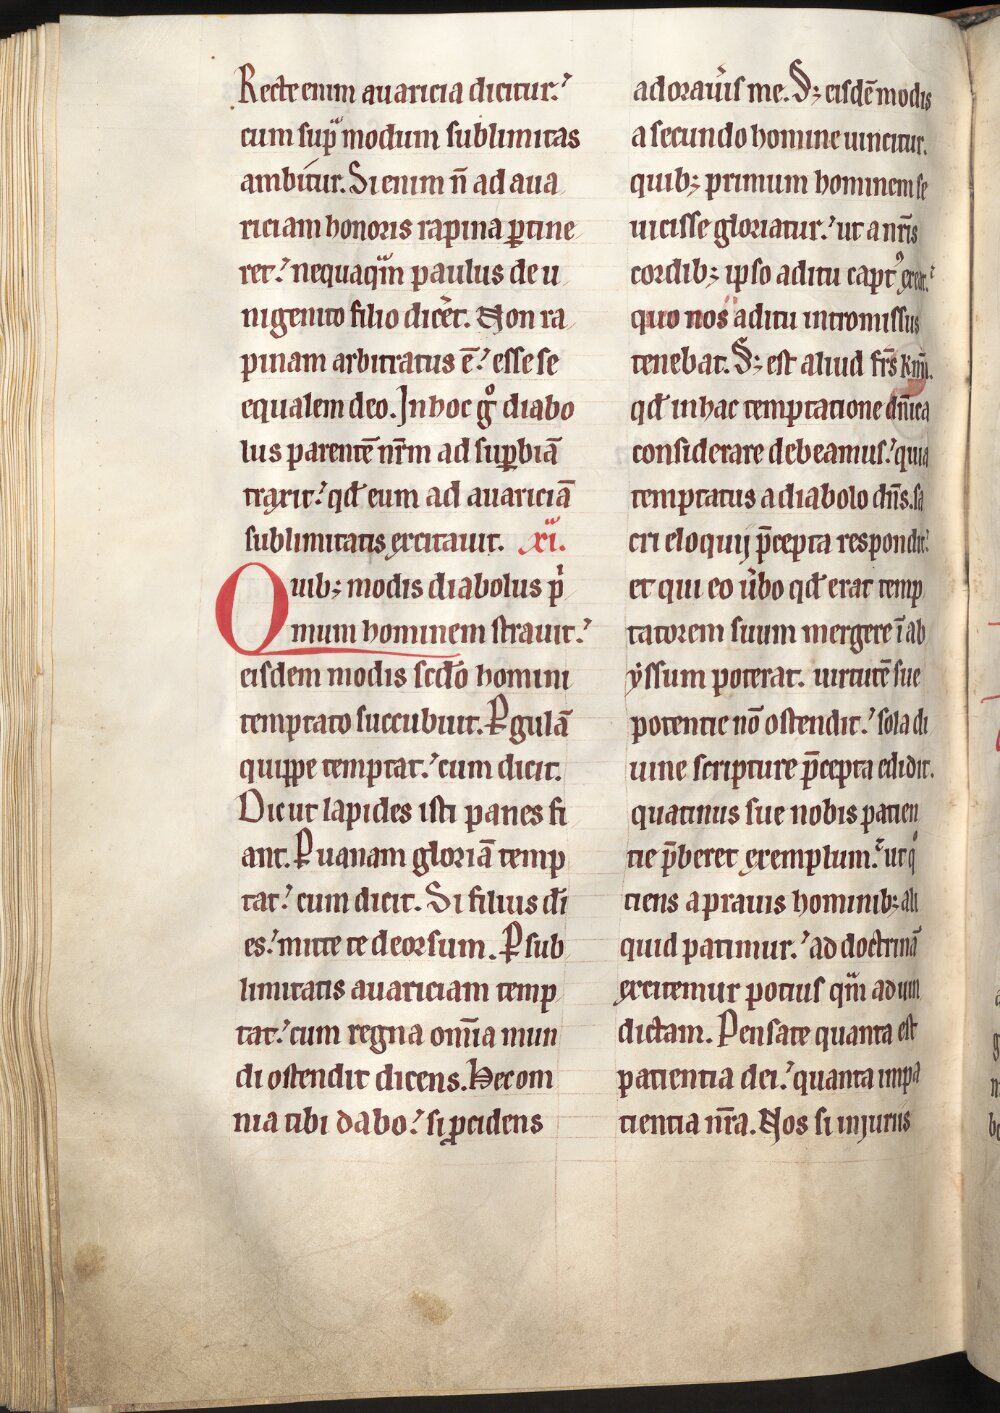 Recte enim auaricia dicitur.
cum sup̄ modum sublimitas
ambitur. Si enim n̄ ad aua
riciam honoris rapina ꝑtine
ret. nequaqᷓm paulus de u
nigenito filio dicer̄et. Non ra
pinam arbitratus ē. esse se
equalem deo. In hoc gͦ diabo
lus parentē nr̄m ad suꝑbiā
traxit. qđ eum ad auariciā
sublimitatis excitauit. xi.
Quibꝫ modis diabolus pͥ
mum hominem strauit.
eisdem modis scđo homini
temptato succubuit. P̱ gulā
quippe temptat. cum dicit.
Dic ut lapides isti panes fi
ant. Ꝑ uanam gloriā temp
tat. cum dicit. Si filius di̅
es. mitte te deorsum. Ꝑ sub
limitatis auariciam temp
tat. cum regna om̄ia mun
di ostendit dicens. Hec om
nia tibi dabo. si ꝓcidens
adorauͥs me. Sꝫ eisdē modis
a secundo homine uincitur.
quibꝫ primum hominem se
uicisse gloriatur. ut a nr̄is
cordibꝫ ipso aditu captꝰ exeat.
quo nos aditu intromissus
tenebat. Sꝫ est aliud fr̄s km̄i.
qđ in hac temptatione dn̄ica
considerare debeamus. quia
temptatus a diabolo dn̄s. sa
cri eloquij p̄cepta respondit.
et qui eo uͥbo qđ erat temp
tatorem suum mergere ī ab
yssum poterat. uirtutē sue
potentie nō ostendit. sola di
uine scripture p̄cepta edidit.
quatinus sue nobis patien
tie p̄beret exemplum. ut qͦ
tiens a prauis hominibꝫ ali
quid patimur. ad doctrinā
excitemur potius qᷓm ad uin
dictam. Pensate quanta est
patientia dei. quanta impa
tientia nr̄a. Nos si injuriis